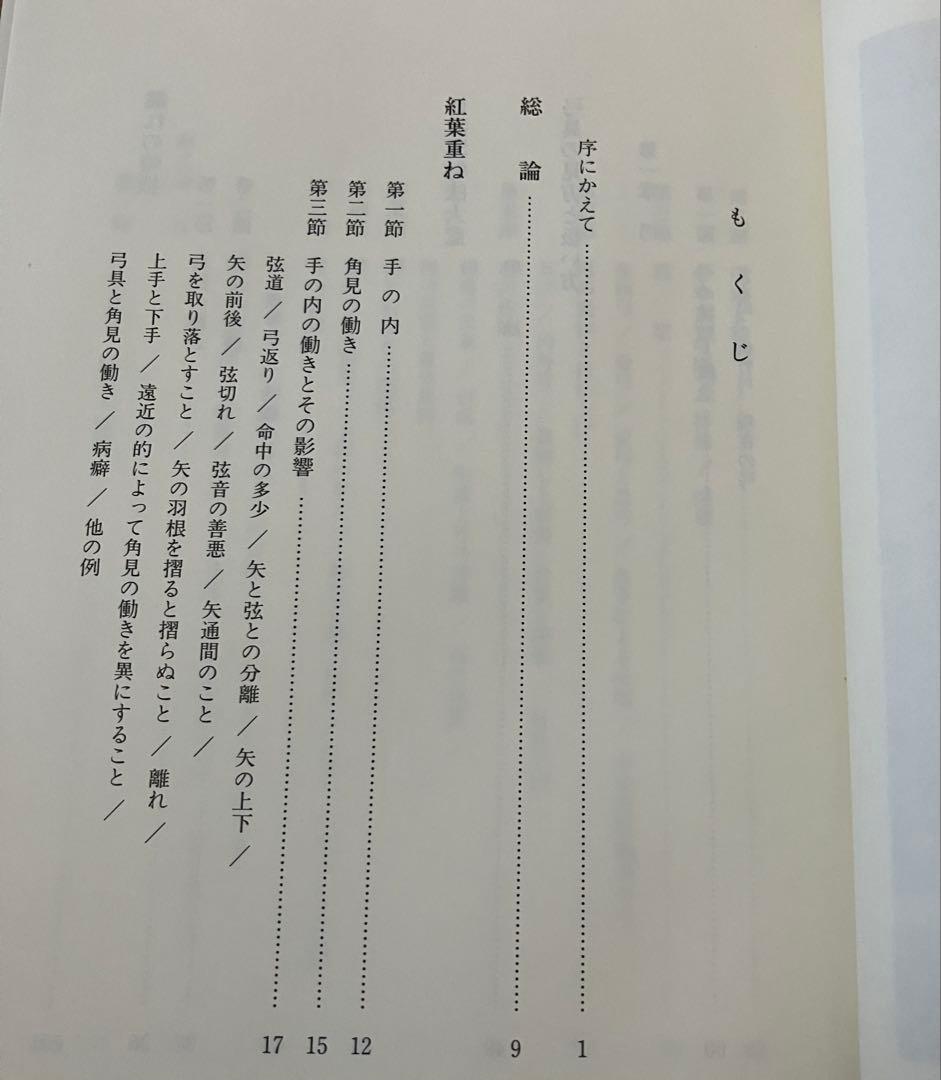 もくじ
序にかえて……………………1
総論……………………9
紅葉重ね
第一節 手の内……………………12
第二節 角見の働き……………………15
第三節 手の内の働きとその影響……………………17
弦道／弓返り／命中の多少／矢と弦との分離／矢の上下／
矢の前後／弦切れ／弦音の善悪／矢通間のこと／
弓を取り落とすこと／矢の羽根を摺ると摺らぬこと／離れ／
上手と下手／遠近の的によって角見の働きを異にすること／
弓具と角見の働き／病癖／他の例